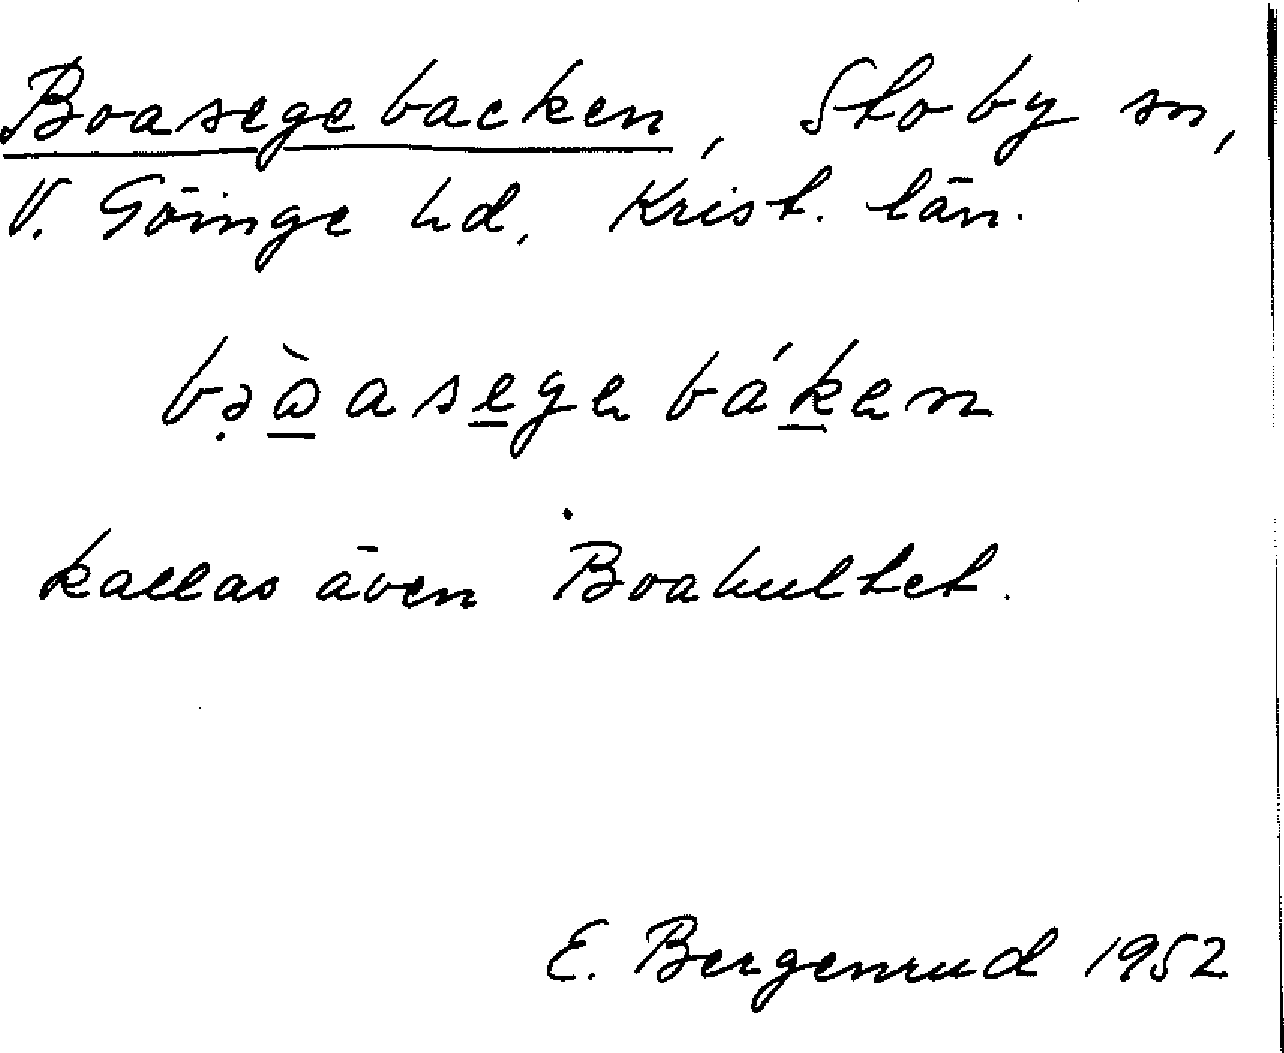 Boasegebacken, Stoby sn,
V. Göinge hd, Krist. län.
bəòasegebáken
kallas även Boahultet.
E. Bergenrud 1952